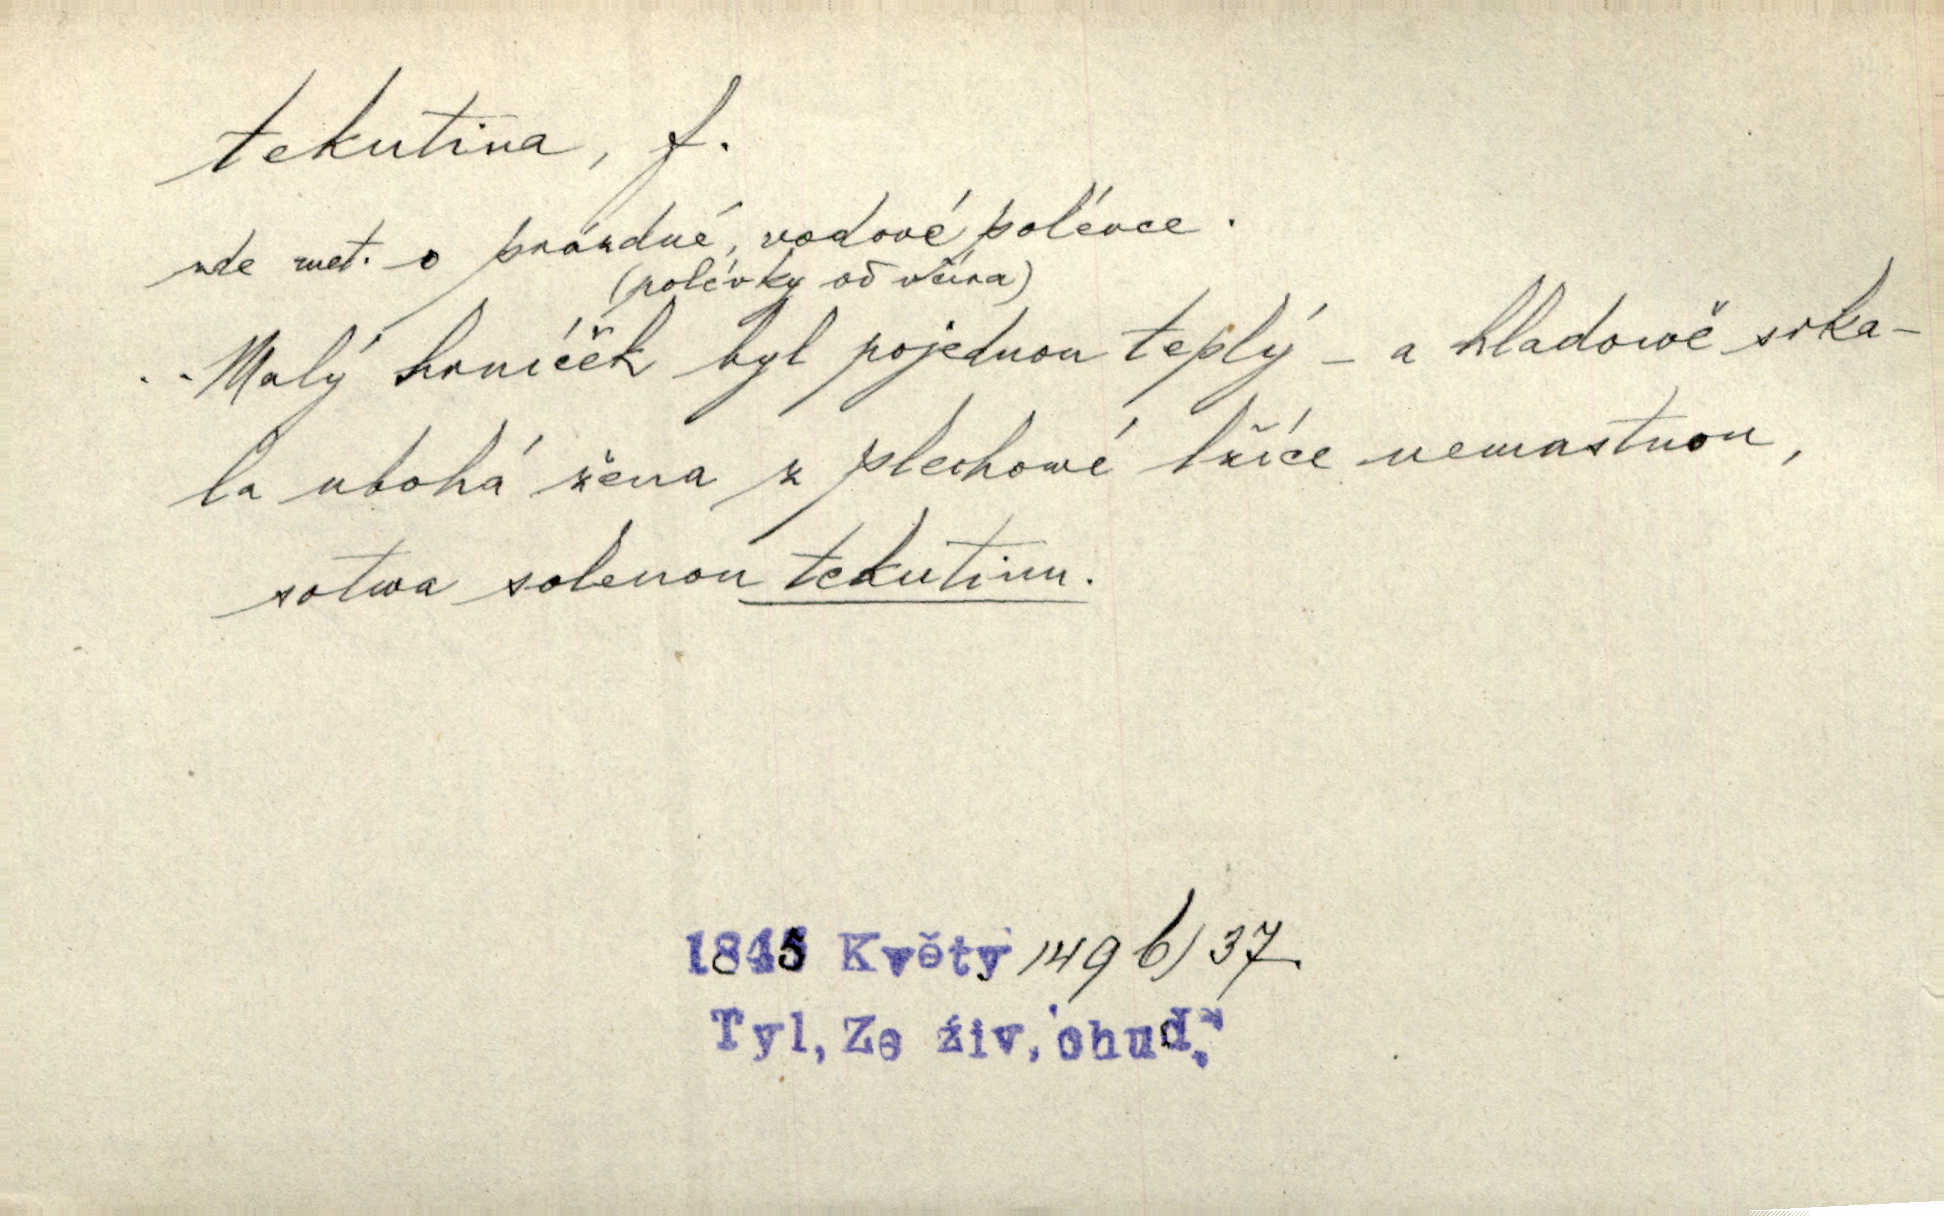 tekutina, f.
zde met. o prázdné, vodové polévce.
(polévky od včíra)
..Malý hrníček byl pojednou teplý – a hladowě srka-
la ubohá žena z plechowé lžíce nemastnou,
sotwa solenou tekutinu.
1845 Květy 149 b) 37.
Tyl, Ze živ. chud.